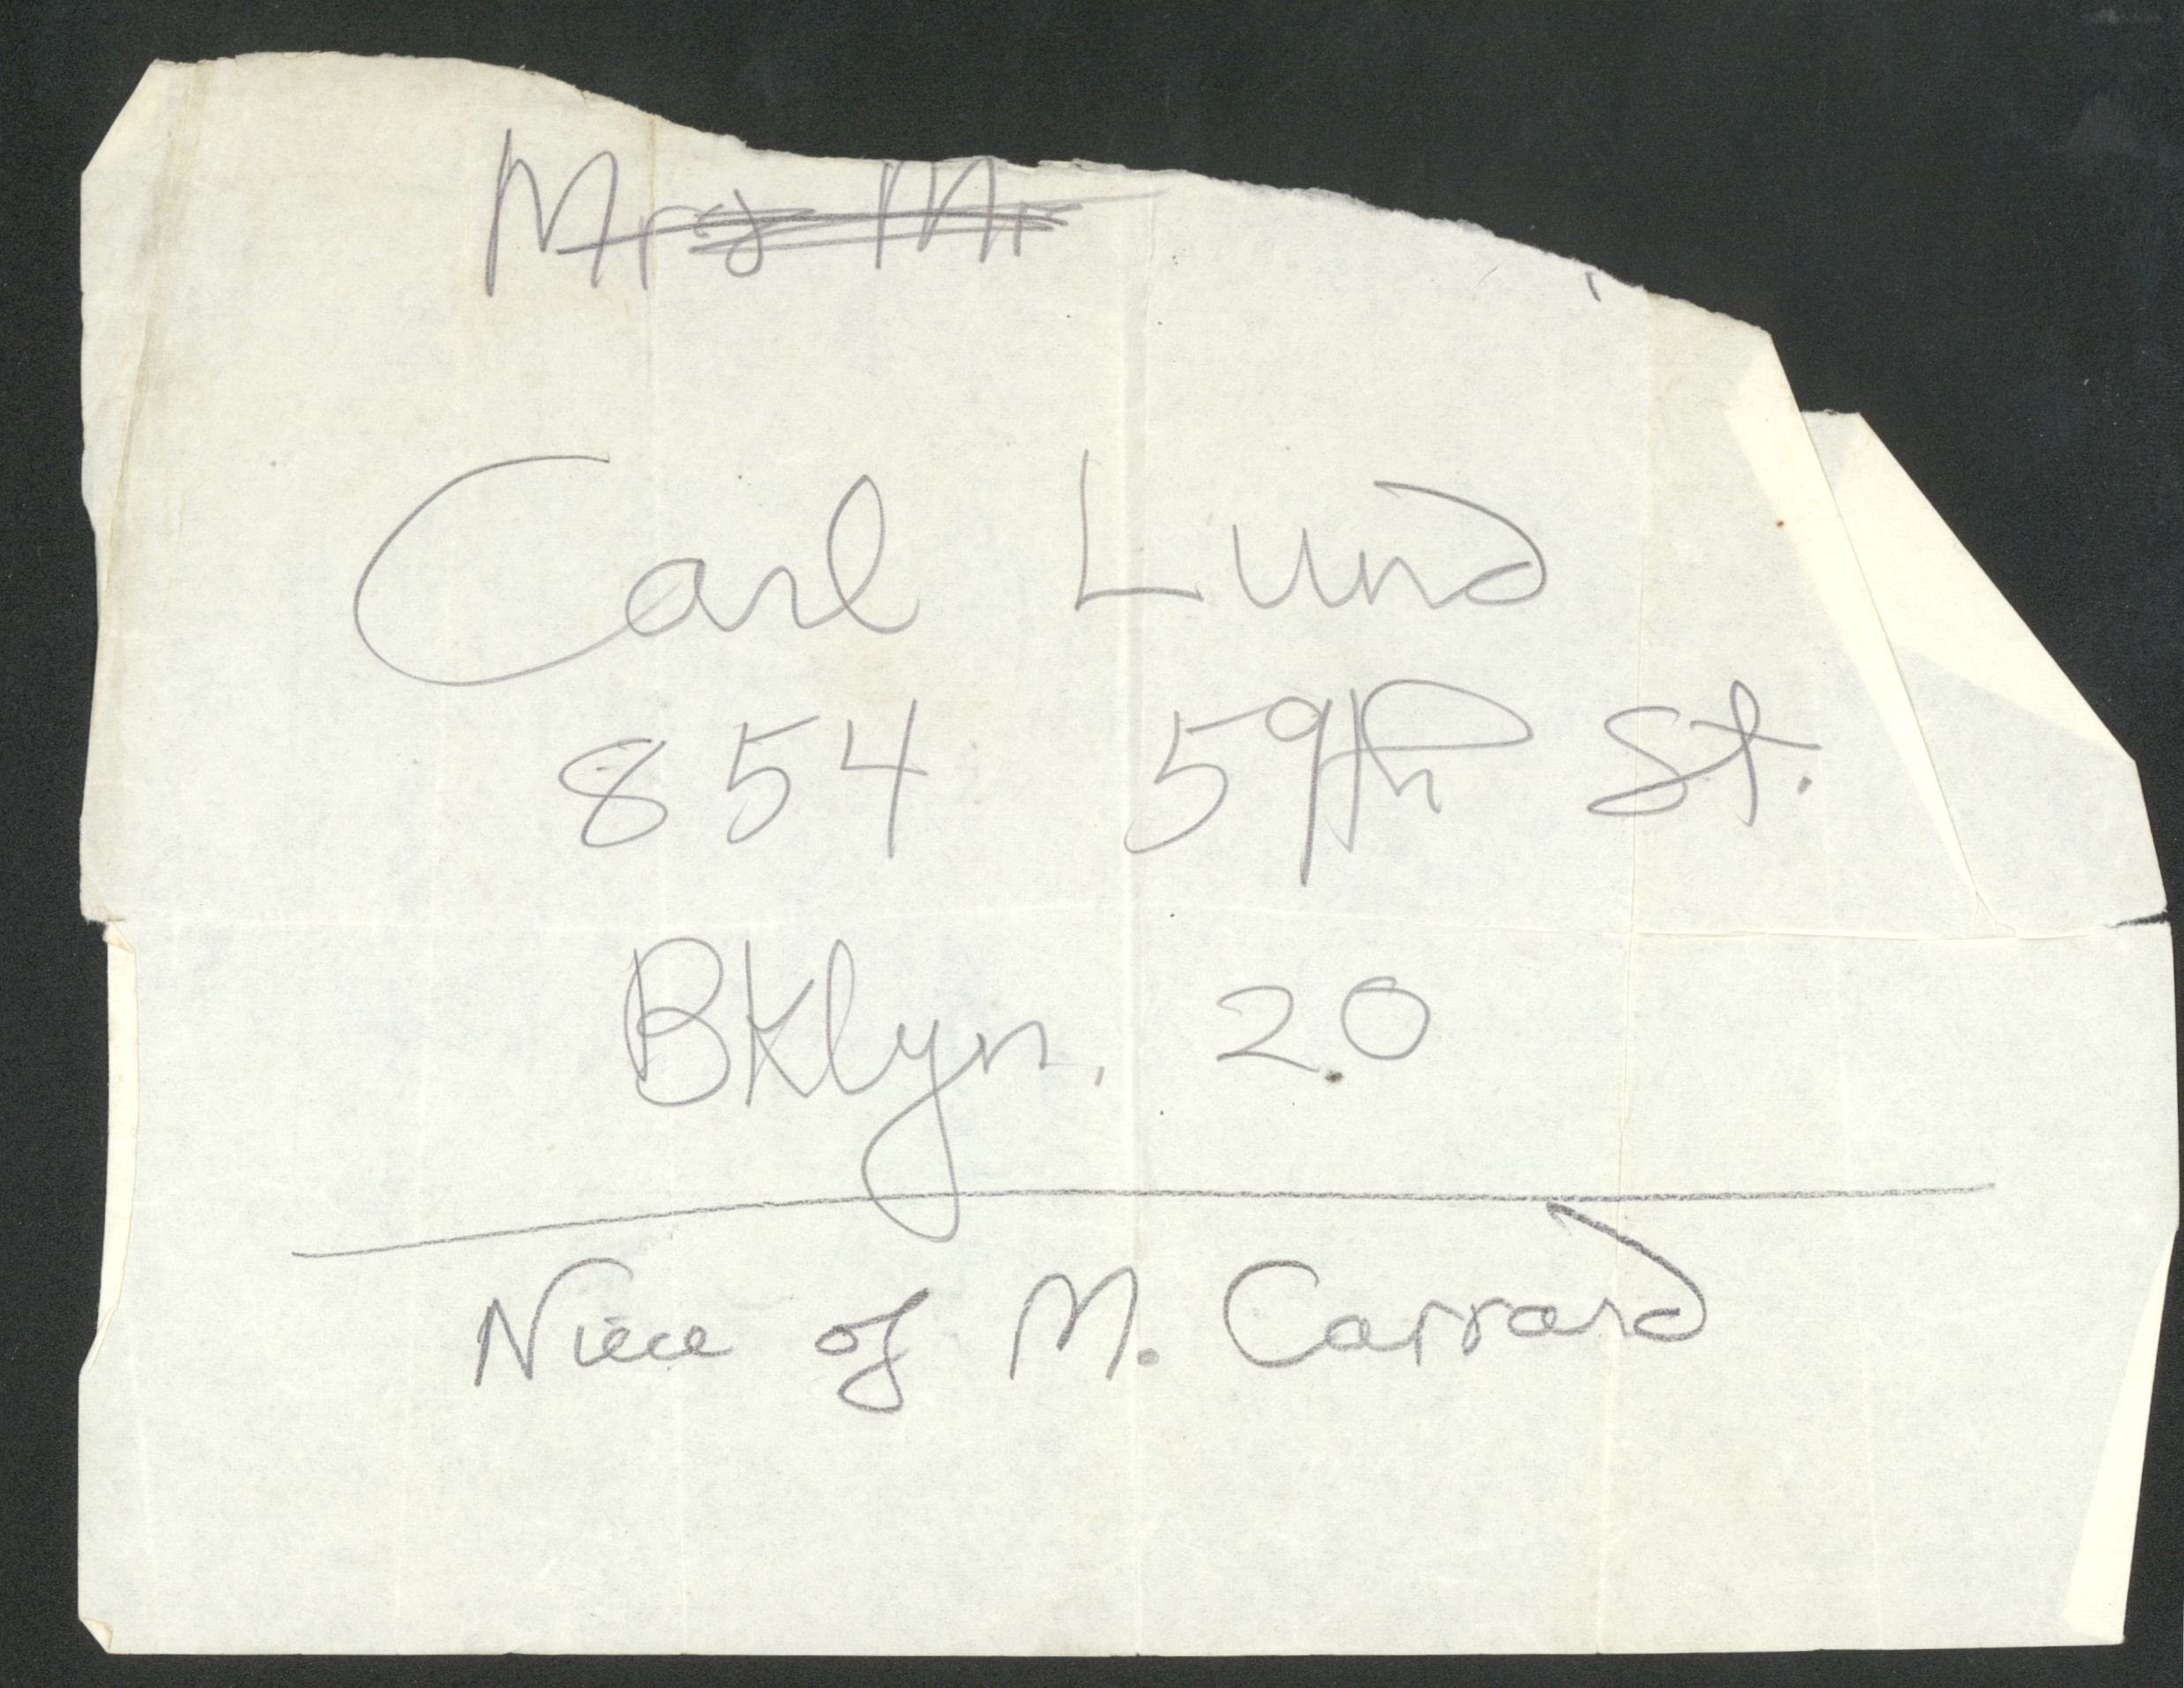 Mrs Mr
Carl Lund
854 59th St.
Bklyn. 20
Niece of M. Carrard